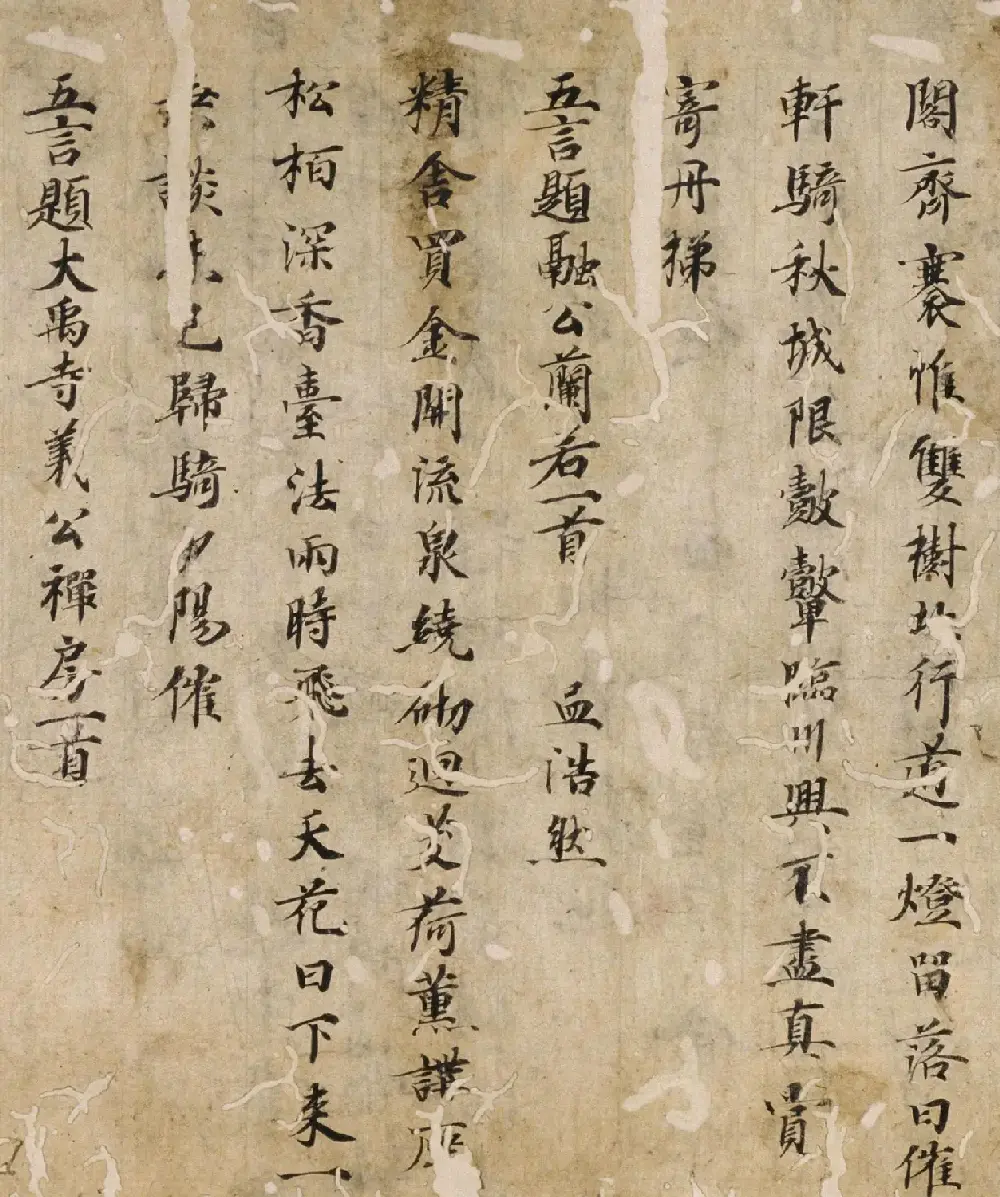 閣齊褰帷雙樹行一燈留落日催
軒騎秋城限皷鼙臨川興不盡真賞
寄丹梯
五言題融公蘭若一首　孟浩然
精舍買金開流泉繞砌迴芰荷薰講座
松柏深香臺法雨時飛去天花日下来一
談未已歸騎夕陽催
五言題大禹寺義公禪房一首